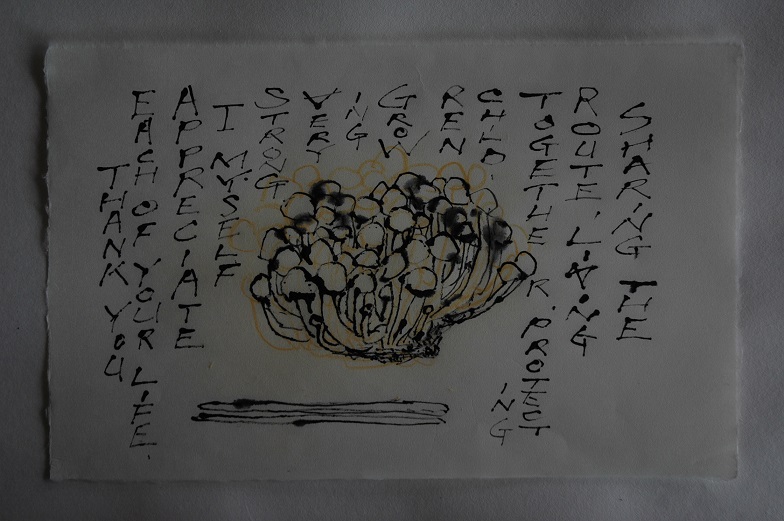 SHARING THE
ROUTE, LIVING
TOGETHER. PROTECT
ING
CHILD
REN
GROW
ING
VERY
STRONG
I MYSELF
APPRECIATE
EACH OF YOUR LIFE.
THANK YOU